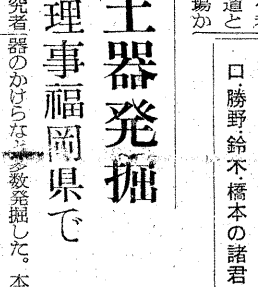 道と
場か
口・勝野・鈴木・橋本の諸君
土器発掘
理事福岡県で
究者
器のかけらなど多数発掘した。本